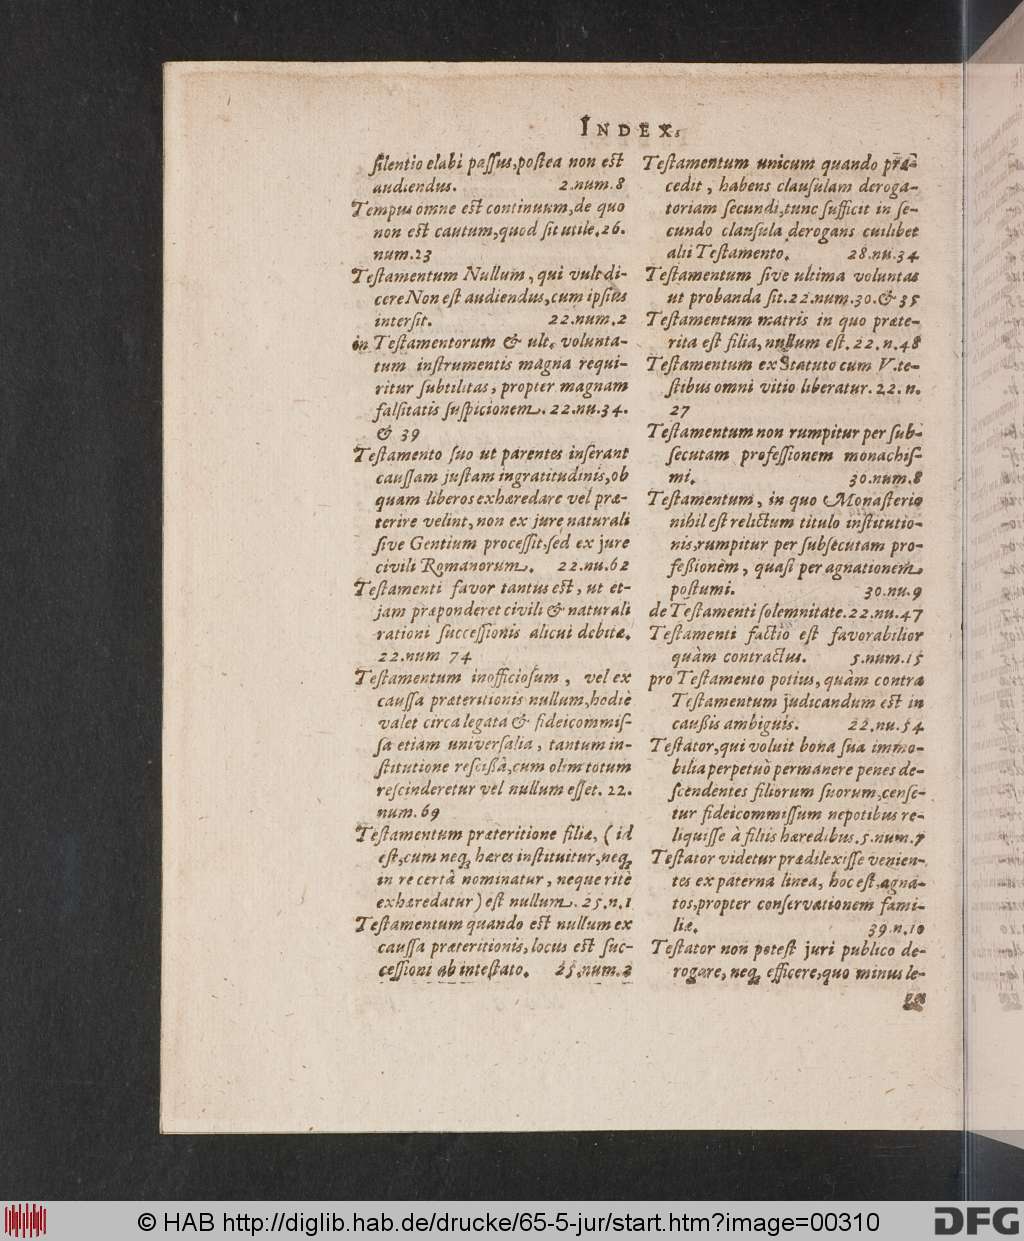 INDEX.
silentio elabi passus, postea non est
audiendus. 2.num.8
Tempus omne est continuum, de quo
non est cautum, quod sit utile. 26.
num.23
Testamentum Nullum, qui vult di-
cere Non est audiendus, cum ipsius
intersit. 22.num.2
in Testamentorum & ult. volunta-
tum instrumentis magna requi-
ritur subtilitas, propter magnam
falsitatis suspicionem. 22.nu.34.
& 39
Testamento suo ut parentes inserant
caussam justam ingratitudinis, ob
quam liberos exhæredare vel præ-
terire velint, non ex jure naturali
sive Gentium processit, sed ex jure
civili Romanorum. 22.nu.62
Testamenti favor tantus est, ut et-
jam præponderet civili & naturali
rationi successionis alicui debitæ.
22.num 74
Testamentum inofficiosum, vel ex
caussa præteritionis nullum, hodiè
valet circa legata & fideicommis-
sa etiam universalia, tantum in-
stitutione rescissâ, cum olim totum
rescinderetur vel nullum esset. 22.
num.69
Testamentum præteritione filiæ, (id
est, cum neq; hæres instituitur, neq;
in re certâ nominatur, neque ritè
exhæredatur) est nullum. 25.n.1
Testamentum quando est nullum ex
caussa præteritionis, locus est suc-
cessioni ab intestato. 25.num.2
Testamentum unicum quando præ-
cedit, habens clausulam deroga-
toriam secundi, tunc sufficit in se-
cundo clausula derogans cuilibet
alii Testamento. 28.nu.34
Testamentum sive ultima voluntas
ut probanda sit. 22.num.30.& 35
Testamentum matris in quo præte-
rita est filia, nullum est. 22.n.48
Testamentum ex Statuto cum V. te-
stibus omni vitio liberatur. 22.n.
27
Testamentum non rumpitur per sub-
secutam professionem monachis-
mi. 30.num.8
Testamentum, in quo Monasterio
nihil est relictum titulo institutio-
nis, rumpitur per subsecutam pro-
fessionem, quasi per agnationem
postumi. 30.nu.9
de Testamenti solemnitate. 22.nu.47
Testamenti factio est favorabilior
quàm contractus. 5.num.15
pro Testamento potius, quàm contra
Testamentum judicandum est in
caussis ambiguis. 22.nu.54
Testator, qui voluit bona sua immo-
bilia perpetuò permanere penes de-
scendentes filiorum suorum, cense-
tur fideicommissum nepotibus re-
liquisse à filiis hæredibus. 5.num.7
Testator videtur prædilexisse venien-
tes ex paterna linea, hoc est, agna-
tos, propter conservationem fami-
liæ. 39.n.10
Testator non potest juri publico de-
rogare, neq; efficere, quo minus le-
ges
© HAB http://diglib.hab.de/drucke/65-5-jur/start.htm?image=00310
DFG